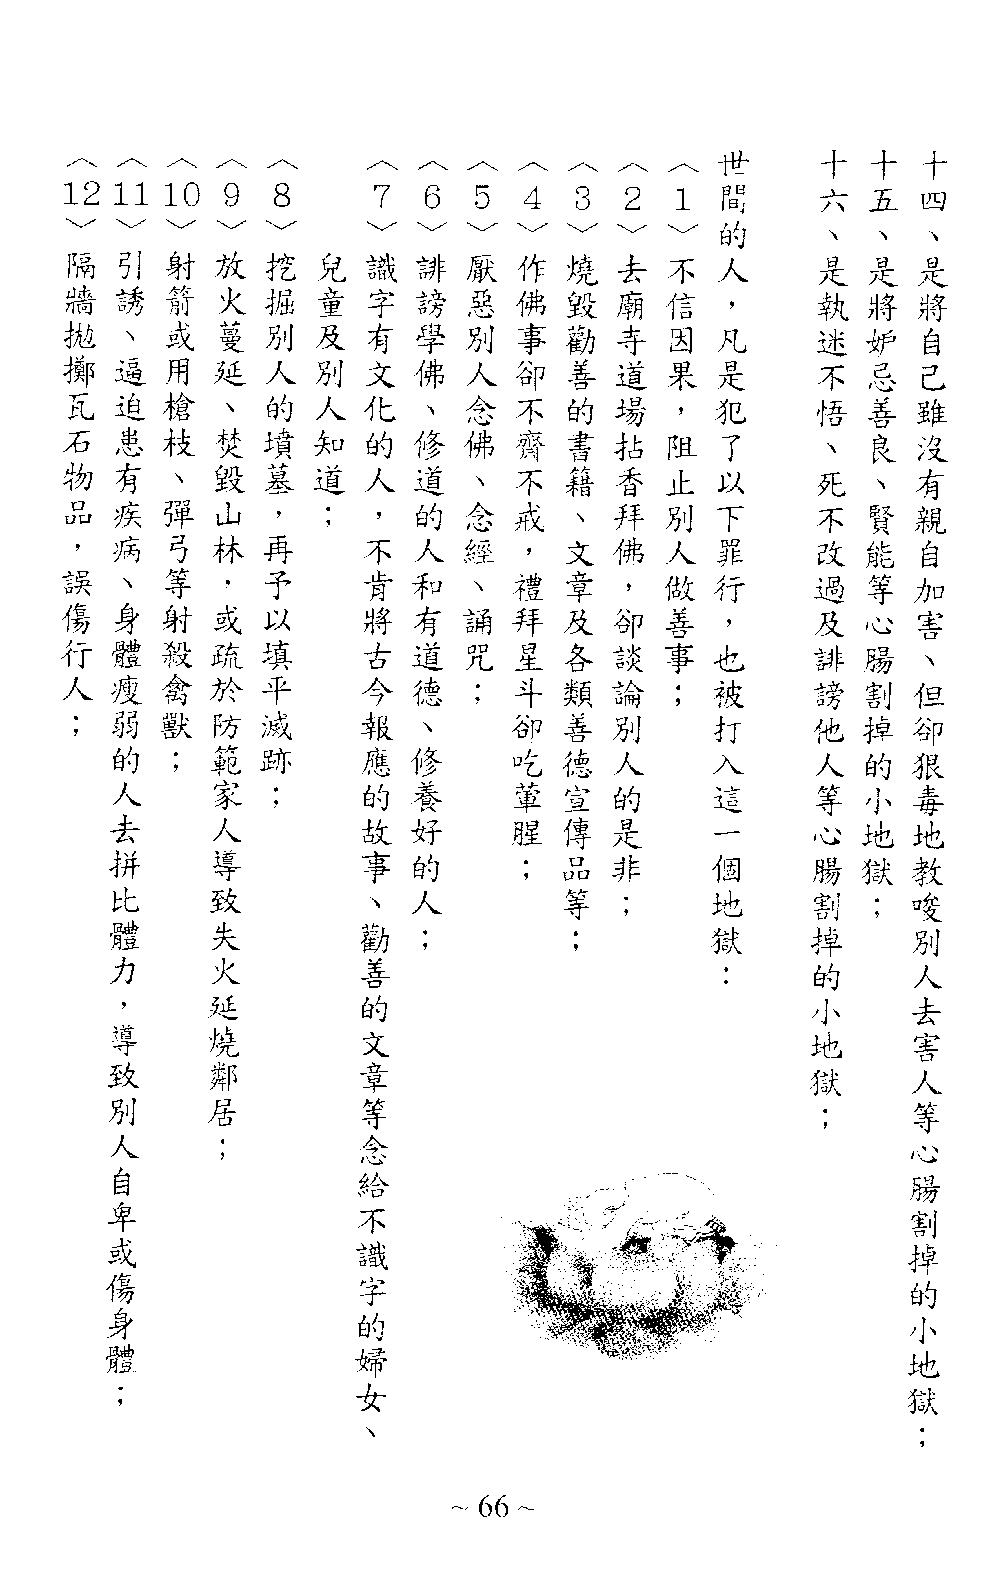 十四、是將自己雖沒有親自加害、但卻狠毒地教唆別人去害人等心腸割掉的小地獄；
十五、是將妒忌善良、賢能等心腸割掉的小地獄；
十六、是執迷不悟、死不改過及誹謗他人等心腸割掉的小地獄；
世間的人，凡是犯了以下罪行，也被打入這一個地獄：
〈1〉不信因果，阻止別人做善事；
〈2〉去廟寺道場拈香拜佛，卻談論別人的是非；
〈3〉燒毀勸善的書籍、文章及各類善德宣傳品等；
〈4〉作佛事卻不齋不戒，禮拜星斗卻吃葷腥；
〈5〉厭惡別人念佛、念經、誦咒；
〈6〉誹謗學佛、修道的人和有道德、修養好的人；
〈7〉識字有文化的人，不肯將古今報應的故事、勸善的文章等念給不識字的婦女、
兒童及別人知道；
〈8〉挖掘別人的墳墓，再予以填平滅跡；
〈9〉放火蔓延、焚毀山林，或疏於防範家人導致失火延燒鄰居；
〈10〉射箭或用槍枝、彈弓等射殺禽獸；
〈11〉引誘、逼迫患有疾病、身體瘦弱的人去拼比體力，導致別人自卑或傷身體；
〈12〉隔牆拋擲瓦石物品，誤傷行人；
~ 66 ~